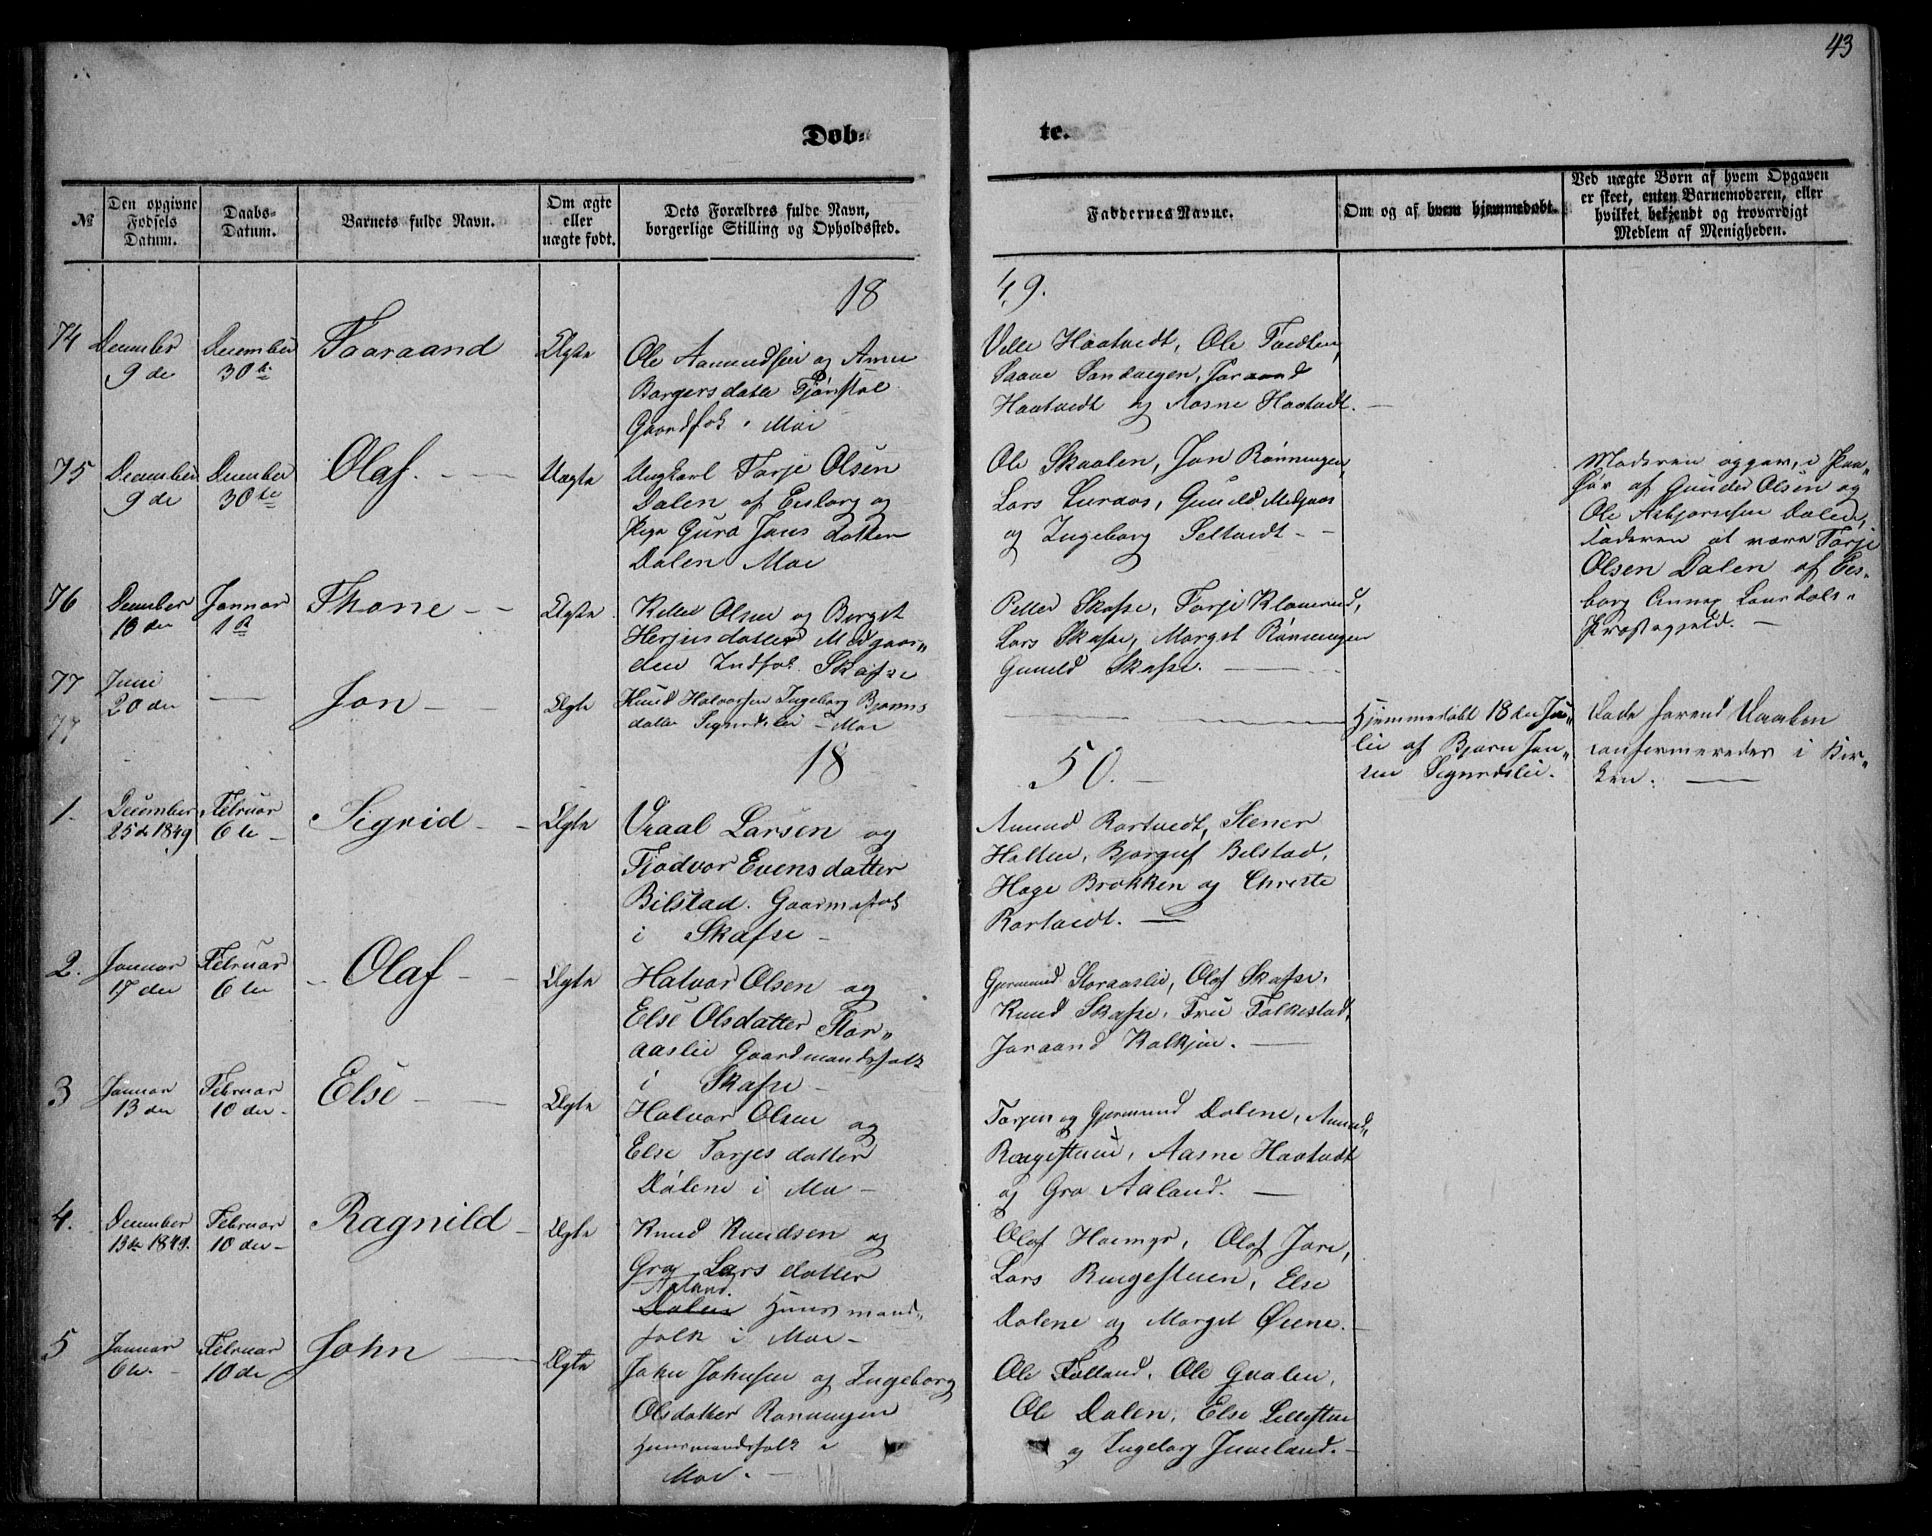 43
Døb-
te.
№
Den opgivne Fødsels Datum.
Daabs-Datum.
Barnets fulde Navn.
Om ægte eller uægte født.
Dets Forældres fulde Navn, borgerlige Stilling og Opholdssted.
Faddernes Navne.
Om og af hvem hjemmedøbt.
Ved uægte Børn af hvem Opgaven er skeet, enten Barnemoderen, eller hvilket bekjendt og troværdigt Medlem af Menigheden.
18
49.
74
December
9de
December
30te
Taaraand
Ægte
Ole Aamundsen og Anne
Borgersdatter Tjønstøl
Gaardfok i Moe
Haatvedt, Ole Tvedten,
Saave Sandvegen, Joraand
Haatvedt og Aasne Haatvedt.
75
December
9de
December
30te
Olaf.
Uægte
Ungkarl Torje Olsen
Dalen af Eidsborg og
Pige Guro Jons datter
Dalen Moe
Ole Skaalen, Jon Rønningen
Lars Luraas, Gunild Midgaar
og Ingeborg Seltvedt
Moderen opgav, i Paa-
hør af Gunder Olsen og
Ole Asbjørnsen Dalen,
Faderen at være Torje
Olsen Dalen af Eids-
borg Annex Laurdals
Præstegjeld.
76
December
13de
Januar
1ste
Thone
Ægte
Kittel Olsen og Berget
Herjusdatter Midgaar-
den Indfok. Skafse
Petter Skafse, Torje Klauerud,
Lars Skafse, Marget Rønningen
Gunild Skafse.
77
Juni
20de
Jon
Ægte
Knud Halvorsen Ingeborg Bjørns
datter Sigurdslie Moe
Hjemmedøbt 18de Ju-
lii af Bjørn Jon-
sen Sigurdslie.
Døde førend Daaben
confirmeredes i Kir-
ken.
77
18
50.
1.
December
25de 1849
Februar
6te
Sigrid
Ægte
Vraal Larsen og
Tjodvor Evensdatter
Bilstad. Gaarmafok
i Skafse
Amund Rortvedt, Stener
Holten, Bjørguf Bilstad,
Hage Brokken og Christe
Rortvedt.
2.
Januar
17de
Februar
6te
Olaf
Ægte
Halvor Olsen og
Else Olsdatter Stor-
aaslie Gaardmandsfolk
i Skafse
Gjermund Storaaslie, Olof Skafse,
Knud Skafse, Tru Folkestad,
Joraand Kolkjøn.
3
Januar
13de
Februar
10de
Else
Ægte
Halvor Olsen og
Else Torjes datter
Dalene i Mo
Torjen og Gjermund Dalene, Amund
Bergestuen, Aasne Haatvedt
og Gro Aaland.
4.
December
13de 1849.
Februar
10de
Ragnild
Ægte
Knud Knudsen og
Gro Lars datter
Aaland.
Dalen Huusmand-
folk i Moe
Olaf Haemyr, Olaf Jore,
Lars Bergestuen, Else
Dalene og Marget Øiene.
5
Januar
6te.
Februar
10de
John
Ægte
John Johnsen og Ingeborg
Olsdatter Rønningen
Huusmandsfolk i
Moe.
Ole Folland, Ole Gvalen,
Ole Dalen, Else Lillestue
og Ingeborg Juveland.